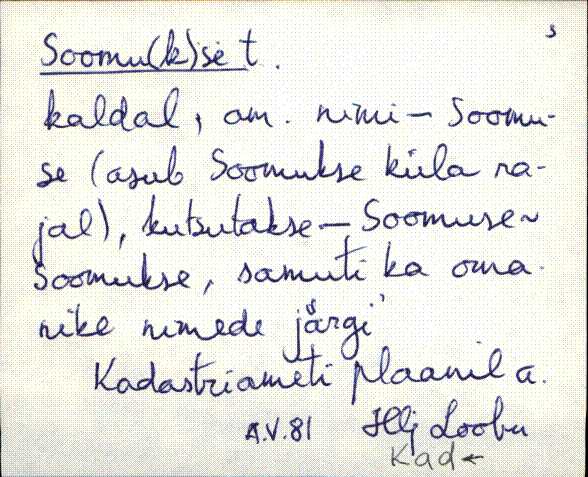 s
Soomu(k)se t.
kaldal, am. nimi – Soomu-
se (asub Soomukse küla ra-
jal), kutsutakse – Soomuse ~
Soomukse, samuti ka oma-
nike nimede järgi
Kadastriameti plaanil a.
A.V.81 Hlj Loobu
Kad ←